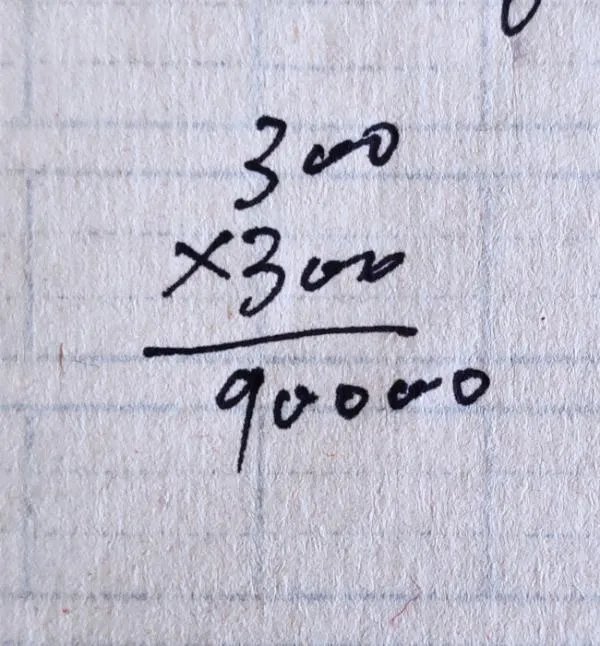 300
×300
90000